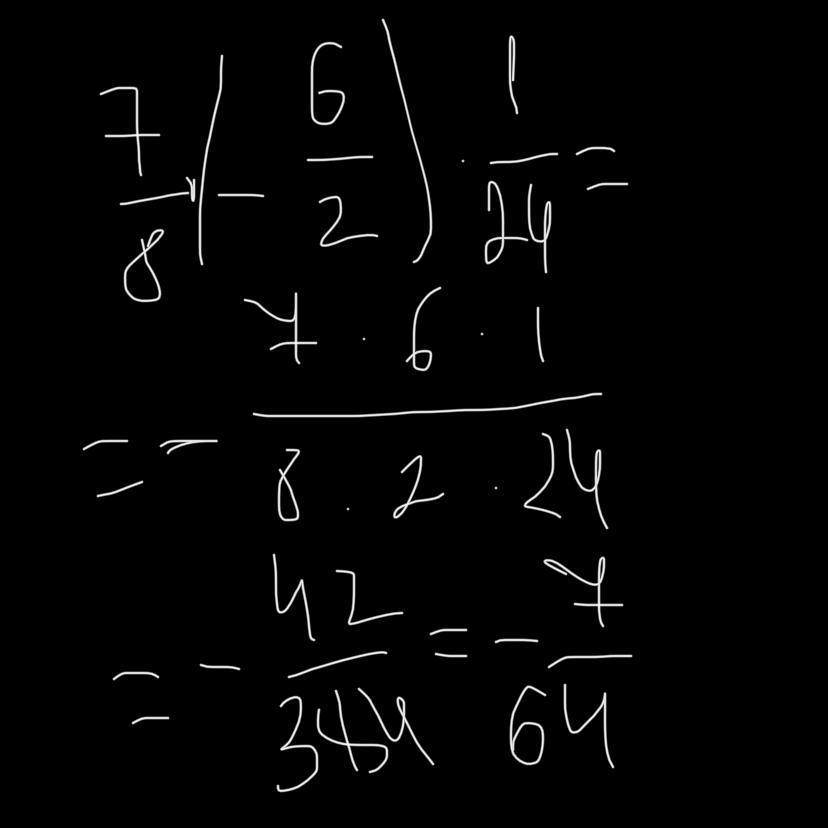 7/8 (- 6/2) · 1/24 =
= - (7 · 6 · 1)/(8 · 2 · 24)
= - 42/384 = - 7/64